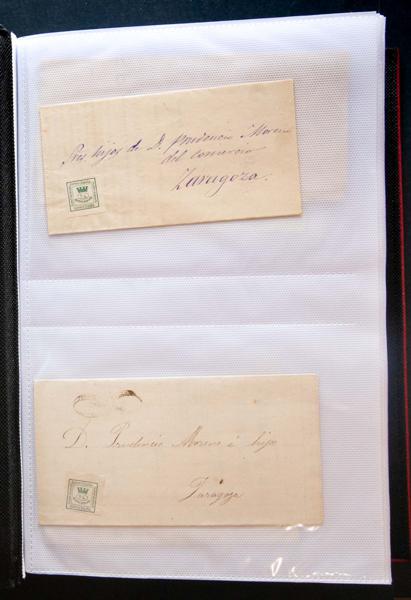 Sres. hijos de D. Prudencio Moreno
del comercio
Zaragoza.
D. Prudencio Moreno é hijo
Zaragoza